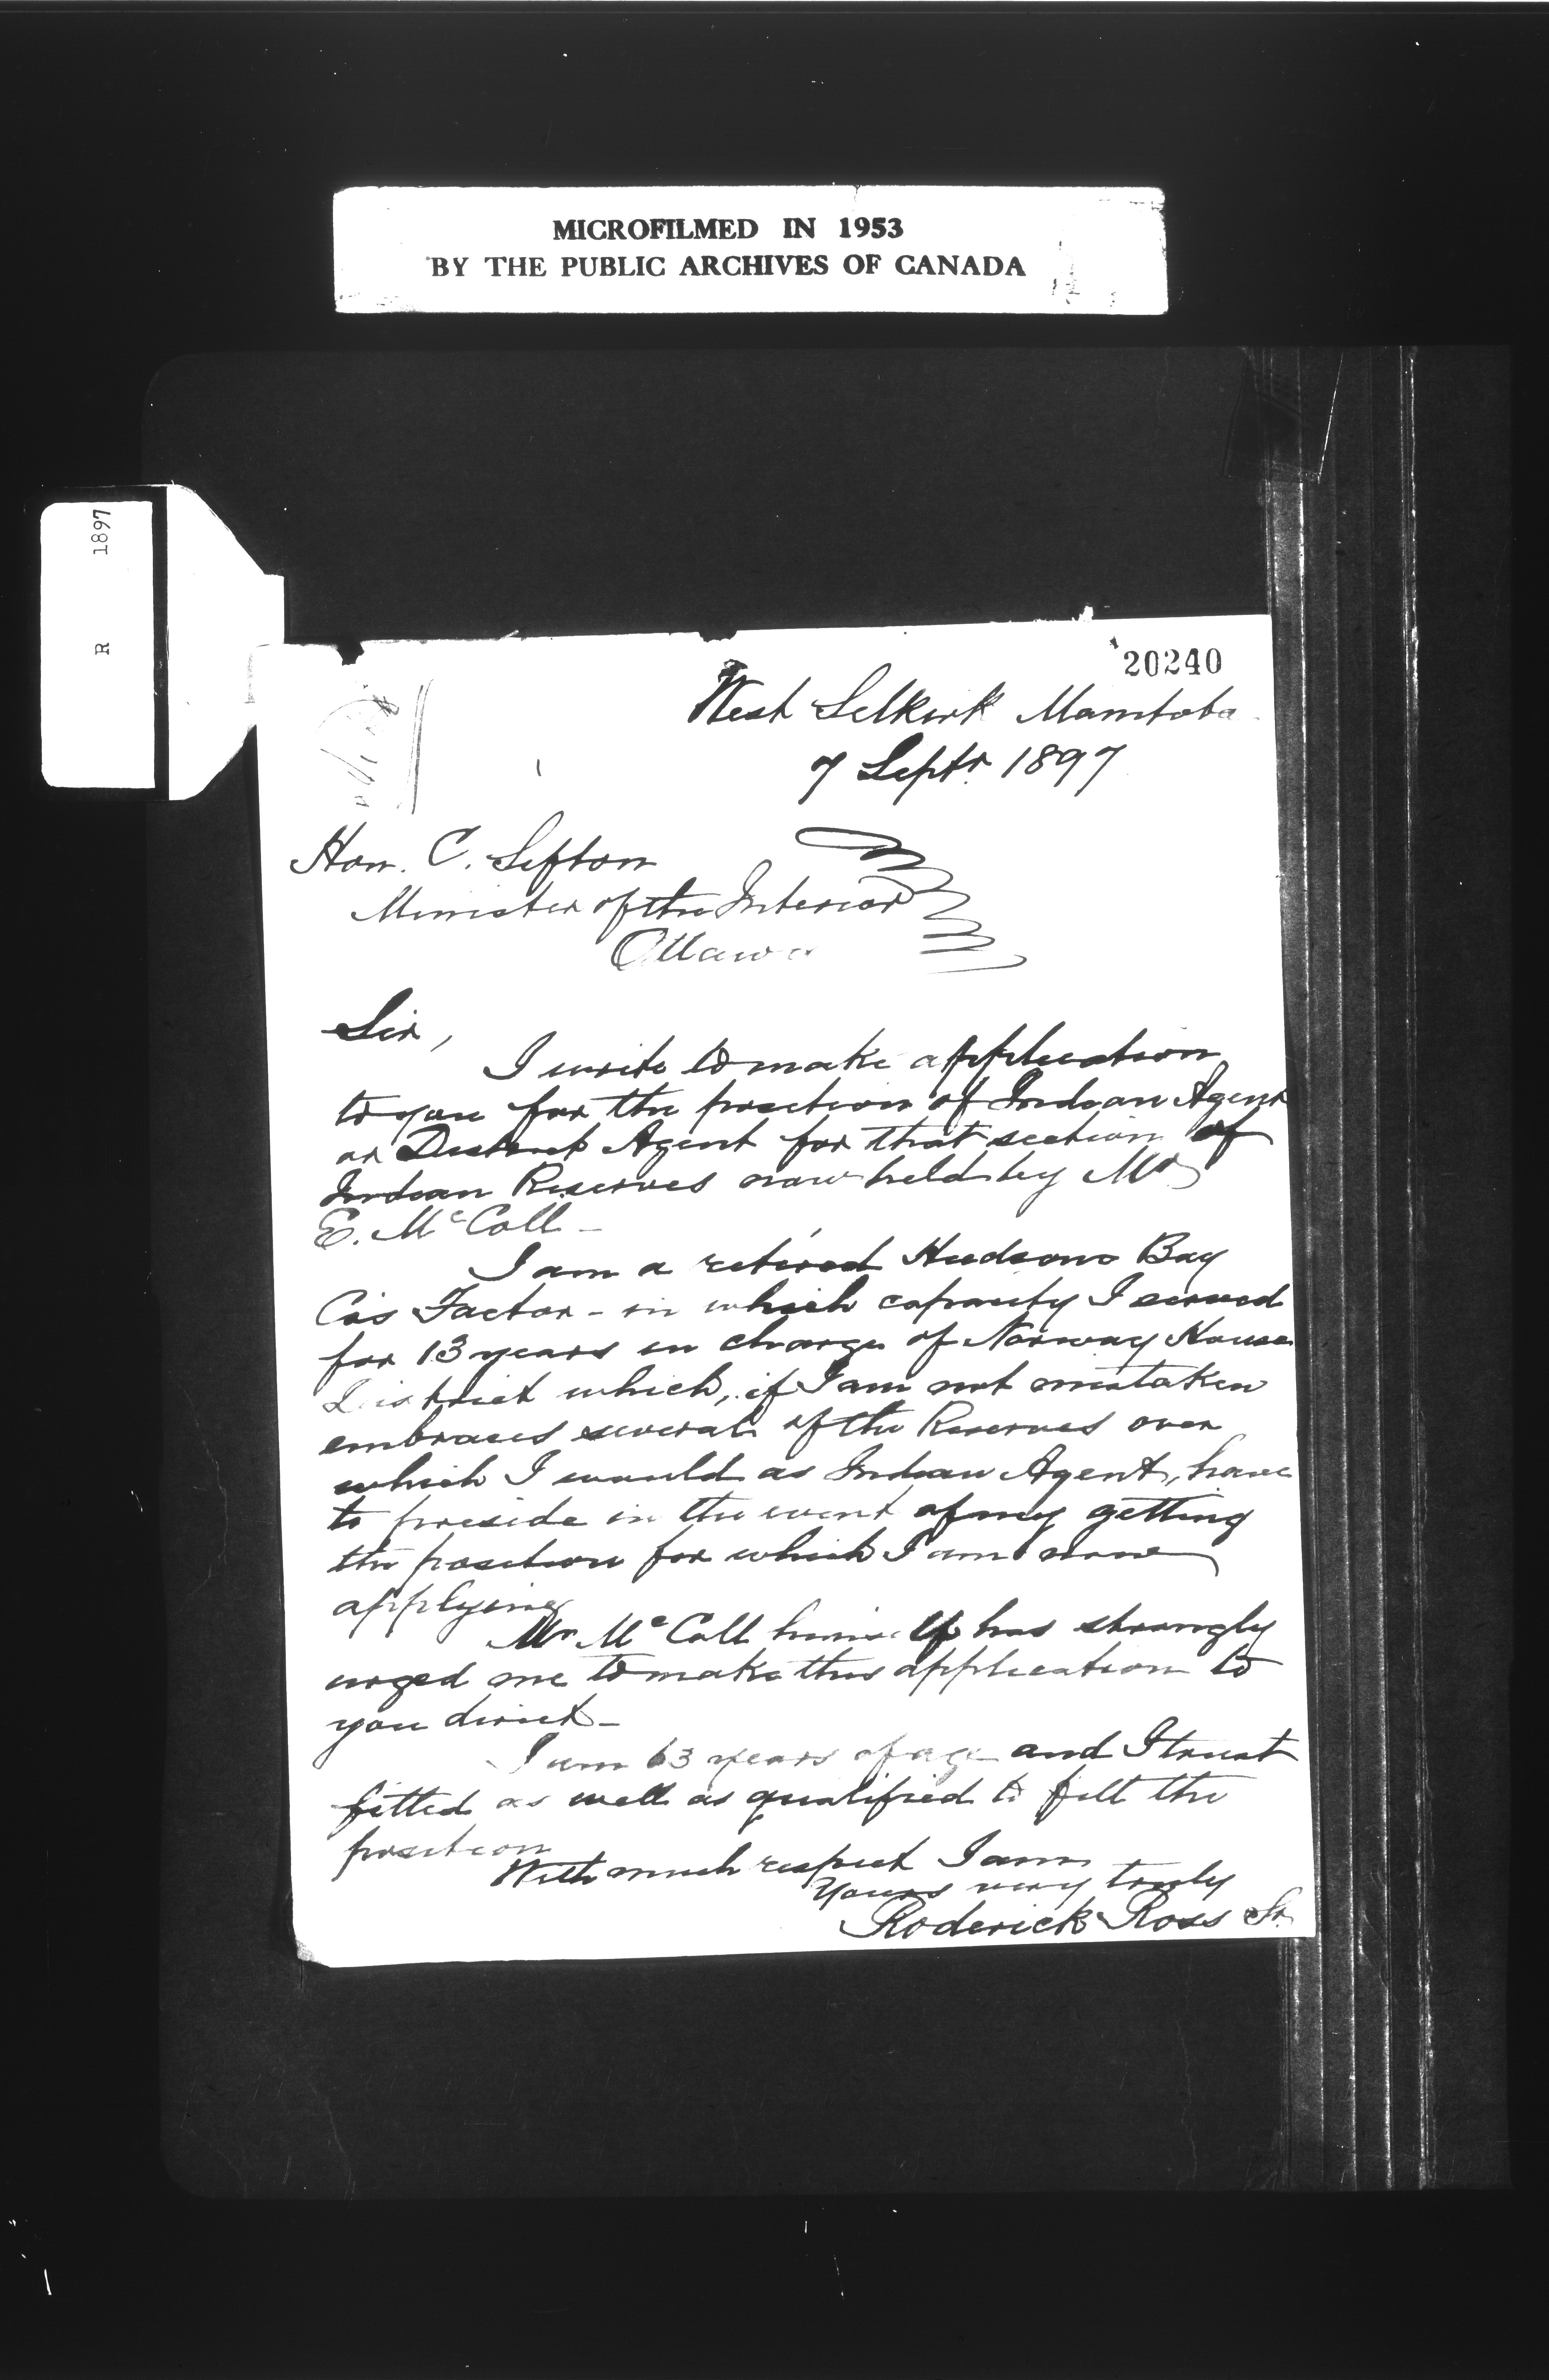 MICROFILMED IN 1953
BY THE PUBLIC ARCHIVES OF CANADA
R 1897
20240
West Selkirk Manitoba
7 Septr. 1897
Hon. C. Sifton
Minister of the Interior
Ottawa
Sir,
I write to make application
to you for the position of Indian Agent
or District Agent for that section of
Indian Reserves now held by Mr
E. McColl -
I am a retired Hudsons Bay
Co's Factor - in which capacity I served
for 13 years in charge of Norway House
District which, if I am not mistaken
embraces several of the Reserves over
which I would as Indian Agent, have
to preside in the event of my getting
the position for which I am now
applying
Mr McColl himself has strongly
urged me to make this application to
you direct -
I am 63 years of age and I trust
fitted as well as qualified to fill the
position
With much respect I am
Yours very truly
Roderick Ross Sr.